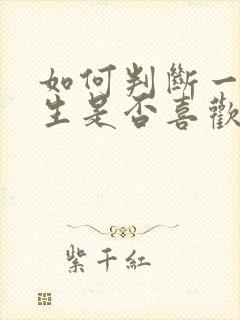 如何判斷一
生是否喜歡
紫千紅